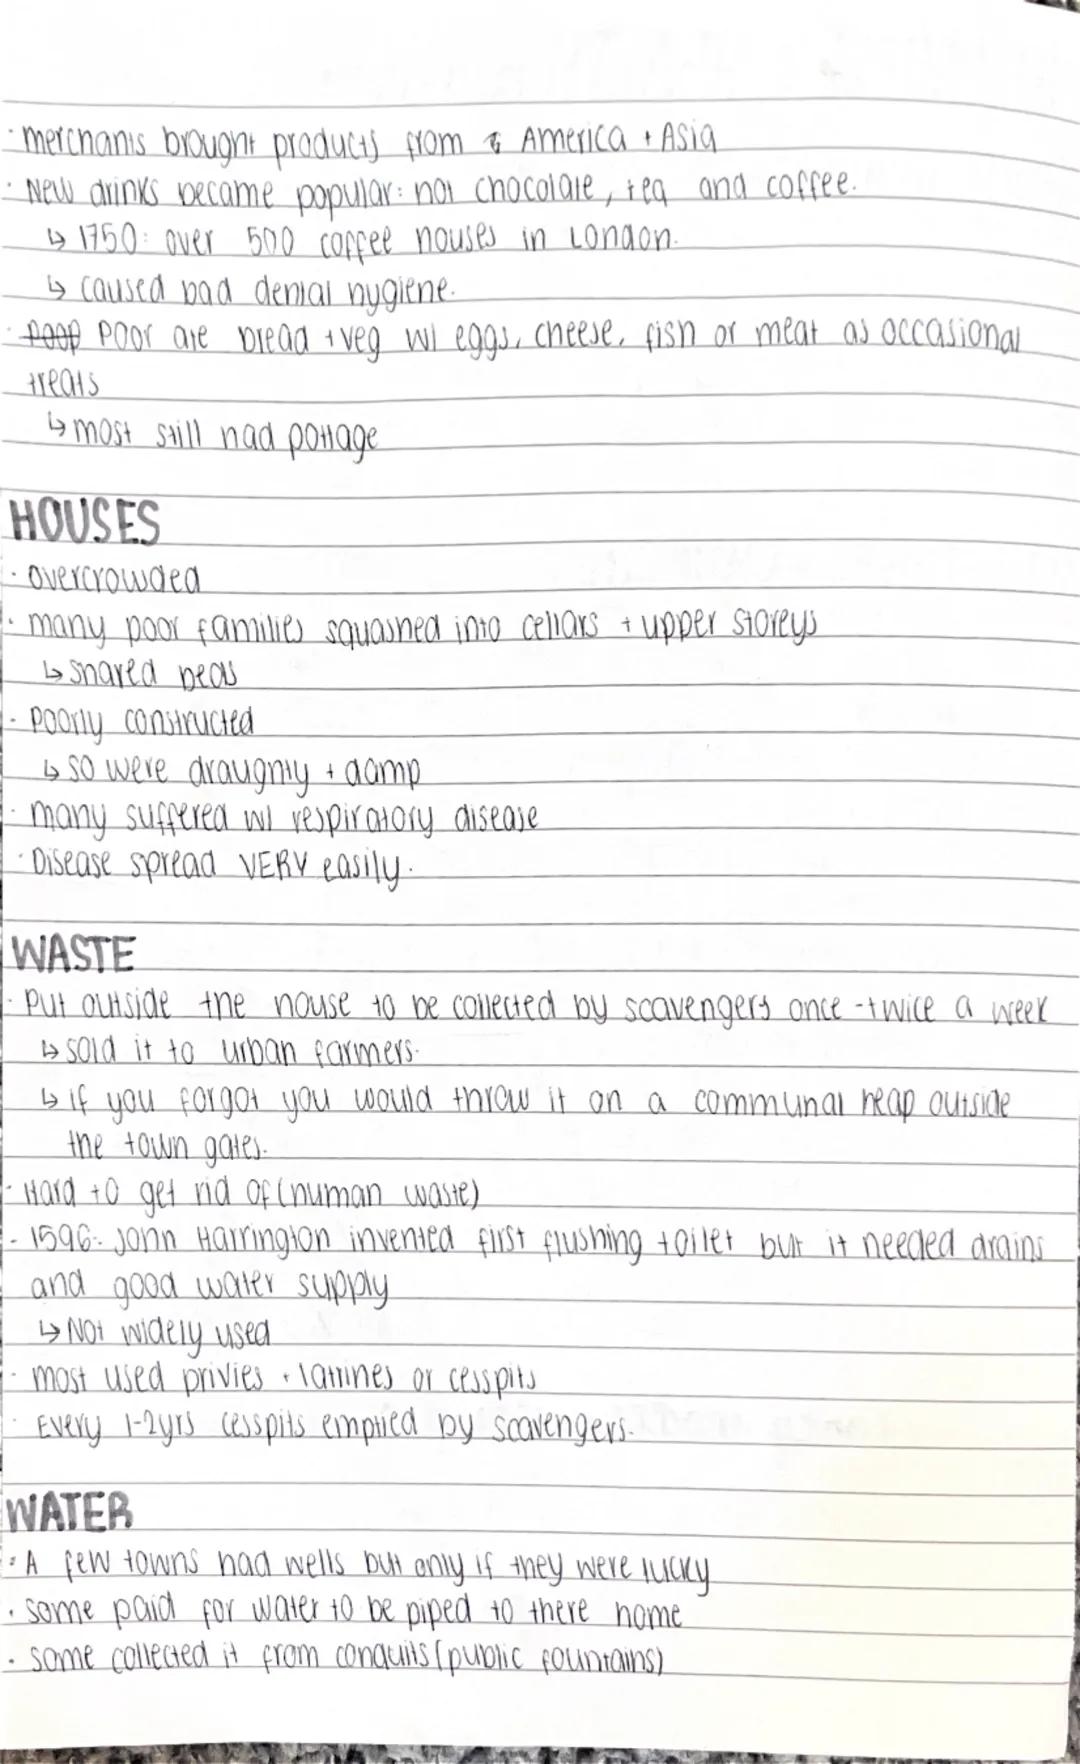 · merchants brought products from America + Asia
· New drinks became popular: hot chocolate, tea and coffee.
↳ 1750: over 500 coffee houses in London.
↳ caused bad dental hygiene.
· Poop Poor ate bread + veg w/ eggs, cheese, fish or meat as occasional
treats
↳ most still had pottage
HOUSES
· overcrowded
· many poor families squashed into cellars + upper storeys
↳ shared beds
· Poorly constructed
↳ so were draughty + damp
· many suffered w/ respiratory disease
· Disease spread VERY easily.
WASTE
· Put outside the house to be collected by scavengers once - twice a week
↳ sold it to urban farmers.
↳ if you forgot you would throw it on a communal heap outside
the town gates.
· Hard to get rid of (human waste)
· 1596: John Harrington invented first flushing toilet but it needed drains
and good water supply
↳ Not widely used
· most used privies + latrines or cesspits
· Every 1-2yrs cesspits emptied by scavengers.
WATER
· A few towns had wells but only if they were lucky
· some paid for water to be piped to there home
· some collected it from conduits (public fountains)